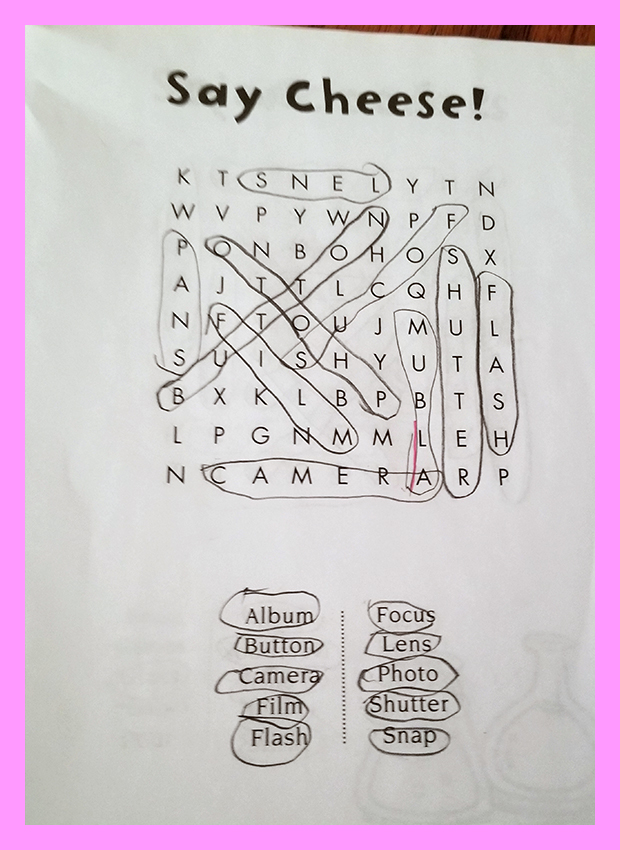 Say Cheese!
K T S N E L Y T N
W V P Y W N P F D
P O N B O H O S X
A J T T L C Q H F
N F T O U J M U L
S U I S H Y U T A
B X K L B P B T S
L P G N M M L E H
N C A M E R A R P
Album Focus
Button Lens
Camera Photo
Film Shutter
Flash Snap